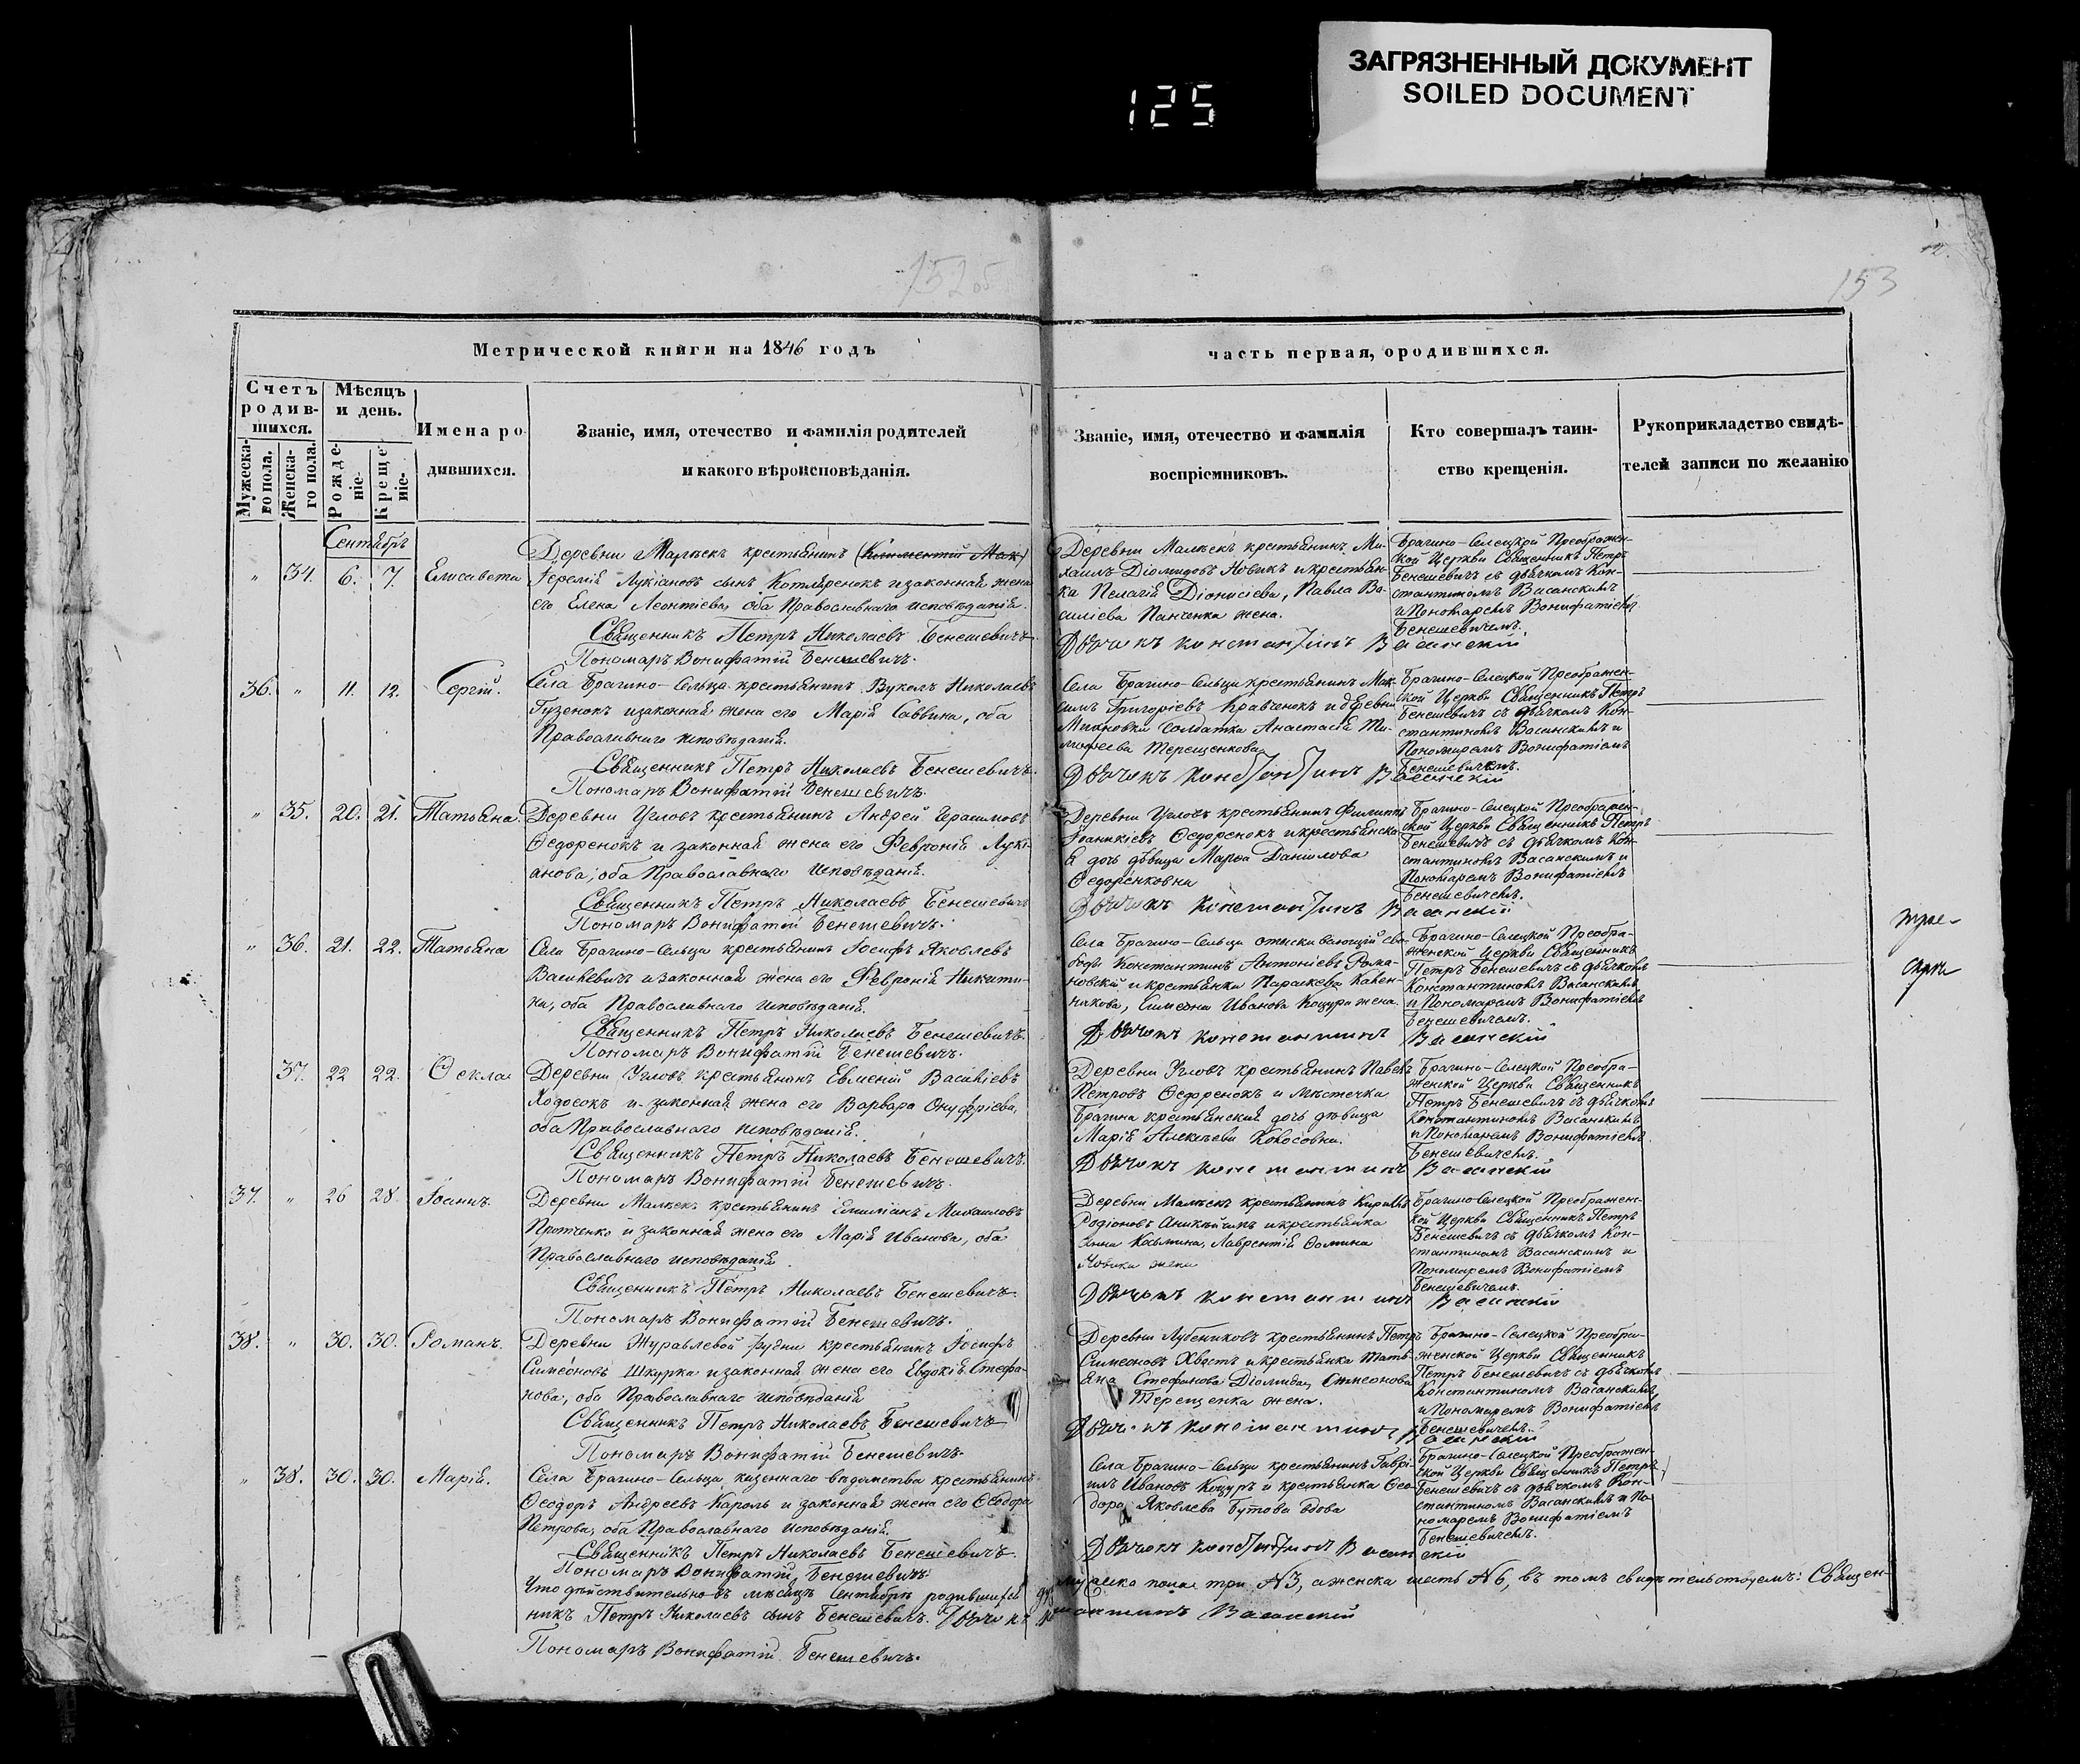 ЗАГРЯЗНЕННЫЙ ДОКУМЕНТ
SOILED DOCUMENT
125
152 об
153
Метрической книги на 1846 годъ
часть первая, ородившихся.
Счетъ родив-шихся.
Мѣсяцъ и день.
Имена ро-
дившихся.
Званіе, имя, отечество и фамилія родителей
и какого вѣроисповѣданія.
Званіе, имя, отечество и фамилія
воспріемниковъ.
Кто совершалъ таин-
ство крещенія.
Рукоприкладство свидѣ-
телей записи по желанію
Мужеска-го пола.
Женска-го пола.
Рожде-ніе.
Креще-ніе.
Сентябрь
" 34. 6. 7. Елисавета
Деревни Малѣекъ крестьянинъ (Климентій Мак)
Іеремій Лукіановъ сынъ Котляренокъ и законная жена
его Елена Леонтіева, оба Православнаго исповѣданія.
Священникъ Петръ Николаевъ Бенешевичъ.
Пономаръ Вонифатій Бенешевичъ.
Деревни Малѣекъ крестьянинъ Ми-
хаилъ Діомидовъ Новикъ и крестьян-
ка Пелагія Діонисіева, Павла Ва-
силіева Панченка жена.
Дьячокъ Константинъ Васанскій
Брагино-Селецкой Преображен-
ской Церкви Священникъ Петръ
Бенешевичъ съ дьячкомъ Кон-
стантиномъ Васанскимъ
и Пономаремъ Вонифатіемъ
Бенешевичемъ.
36. " 11. 12. Сергій.
Села Брагино-Сельца крестьянинъ Вуколъ Николаевъ
Гузенокъ и законная жена его Марія Саввина, оба
Православнаго исповѣданія.
Священникъ Петръ Николаевъ Бенешевичъ.
Пономаръ Вонифатій Бенешевичъ.
Села Брагино-Сельца крестьянинъ Мак-
симъ Григоріевъ Кравченокъ и деревни
Михновки Солдатка Анастасія Ти-
мофеева Терещенкова
Дьячокъ Константинъ Васанскій
Брагино-Селецкой Преображен-
ской Церкви Священникъ Петръ
Бенешевичъ съ дьячкомъ Кон-
стантиномъ Васанскимъ и
Пономаремъ Вонифатіемъ
Бенешевичемъ.
" 35. 20. 21. Татьяна.
Деревни Угловъ крестьянинъ Андрей Герасимовъ
Ѳедоренокъ и законная жена его Февронія Луки-
анова, оба Православнаго исповѣданія.
Священникъ Петръ Николаевъ Бенешевичъ
Пономаръ Вонифатій Бенешевичъ.
Деревни Угловъ крестьянинъ Филиппъ
Іоанникіевъ Ѳедоренокъ и крестьянска-
я дочь дѣвица Марѳа Даніилова
Ѳедоренковна
Дьячокъ Константинъ Васанскій
Брагино-Селецкой Преображен-
ской Церкви Священникъ Петръ
Бенешевичъ съ дьячкомъ Кон-
стантиномъ Васанскимъ и
Пономаремъ Вонифатіемъ
Бенешевичемъ.
" 36. 21. 22. Татьяна
Села Брагино-Сельца крестьянинъ Іосифъ Яковлевъ
Васькевичъ и законная жена его Февронія Никити-
на, оба Православнаго исповѣданія.
Священникъ Петръ Николаевъ Бенешевичъ.
Пономаръ Вонифатій Бенешевичъ.
Села Брагино-Сельца отыскивающій сво-
боды Константинъ Антоніевъ Рома-
новскій и крестьянка Параскева
Симеона Иванова Коцура жена.
Дьячокъ Константинъ Васанскій
Брагино-Селецкой Преобра-
женской Церкви Священникъ
Петръ Бенешевичъ съ дьячкомъ
Константиномъ Васанскимъ
и Пономаремъ Вонифатіемъ
Бенешевичемъ.
37. 22 22. Ѳекла
Деревни Угловъ крестьянинъ Евменій Василіевъ
Ходосокъ и законная жена его Варвара Онуфріева,
оба Православнаго исповѣданія.
Священникъ Петръ Николаевъ Бенешевичъ.
Пономаръ Вонифатій Бенешевичъ.
Деревни Угловъ крестьянинъ Павелъ
Петровъ Ѳедоренокъ и Мѣстечка
Брагина крестьянская дочь дѣвица
Марія Алексѣева Кокосовна.
Дьячокъ Константинъ Васанскій
Брагино-Селецкой Преобра-
женской Церкви Священникъ
Петръ Бенешевичъ съ дьячкомъ
Константиномъ Васанскимъ
и Пономаремъ Вонифатіемъ
Бенешевичемъ.
37. " 26 28. Іоаннъ.
Деревни Малѣекъ крестьянинъ Емиліанъ Михаиловъ
Протченко и законная жена его Марія Иванова, оба
Православнаго исповѣданія.
Священникъ Петръ Николаевъ Бенешевичъ.
Пономаръ Вонифатій Бенешевичъ.
Деревни Малѣекъ крестьянинъ Кириллъ
Родіоновъ и крестьянка
Анна Козьмина, Лаврентія Ѳомина
Новика жена
Дьячокъ Константинъ Васанскій
Брагино-Селецкой Преображен-
кой Церкви Священникъ Петръ
Бенешевичъ съ дьячкомъ Кон-
стантиномъ Васанскимъ и
Пономаремъ Вонифатіемъ
Бенешевичемъ.
38. " 30. 30. Романъ.
Деревни Журавлевой Рудни крестьянинъ Іосифъ
Симеоновъ Шкурка и законная жена его Евдокія Стефа-
нова, оба Православнаго исповѣданія
Священникъ Петръ Николаевъ Бенешевичъ
Пономаръ Вонифатій Бенешевичъ.
Деревни Лубениковъ крестьянинъ Петръ
Симеоновъ Хвастъ и крестьянка Тать-
яна Стефанова Діомида Симеонова
Терещенка жена.
Дьячокъ Константинъ Васанскій
Брагино-Селецкой Преобра-
женской Церкви Священникъ
Петръ Бенешевичъ съ дьячкомъ
Константиномъ Васанскимъ
и Пономаремъ Вонифатіемъ
Бенешевичемъ.
" 38. 30. 30. Марія.
Села Брагино-Сельца казеннаго вѣдомства крестьянинъ
Ѳеодоръ Андреевъ Кароль и законная жена его Ѳеодора
Петрова, оба Православнаго исповѣданія.
Священникъ Петръ Николаевъ Бенешевичъ.
Пономаръ Вонифатій Бенешевичъ.
Села Брагино-Сельца крестьянинъ Гаврі-
илъ Ивановъ Коцуръ и крестьянка Ѳео-
дора Яковлева Бутова вдова
Дьячокъ Константинъ Васанскій
Брагино-Селецкой Преображен-
ской Церкви Священникъ Петръ
Бенешевичъ съ дьячкомъ Кон-
стантиномъ Васанскимъ и По-
номаремъ Вонифатіемъ
Бенешевичемъ.
Что дѣйствительно въ мѣсяцѣ Сентябрѣ родившихся мужеска пола три №3, а женска шесть №6, въ томъ свидѣтельствуемъ: Священ-
никъ Петръ Николаевъ сынъ Бенешевичъ. Дьячокъ Константинъ Васанскій
Пономаръ Вонифатій Бенешевичъ.